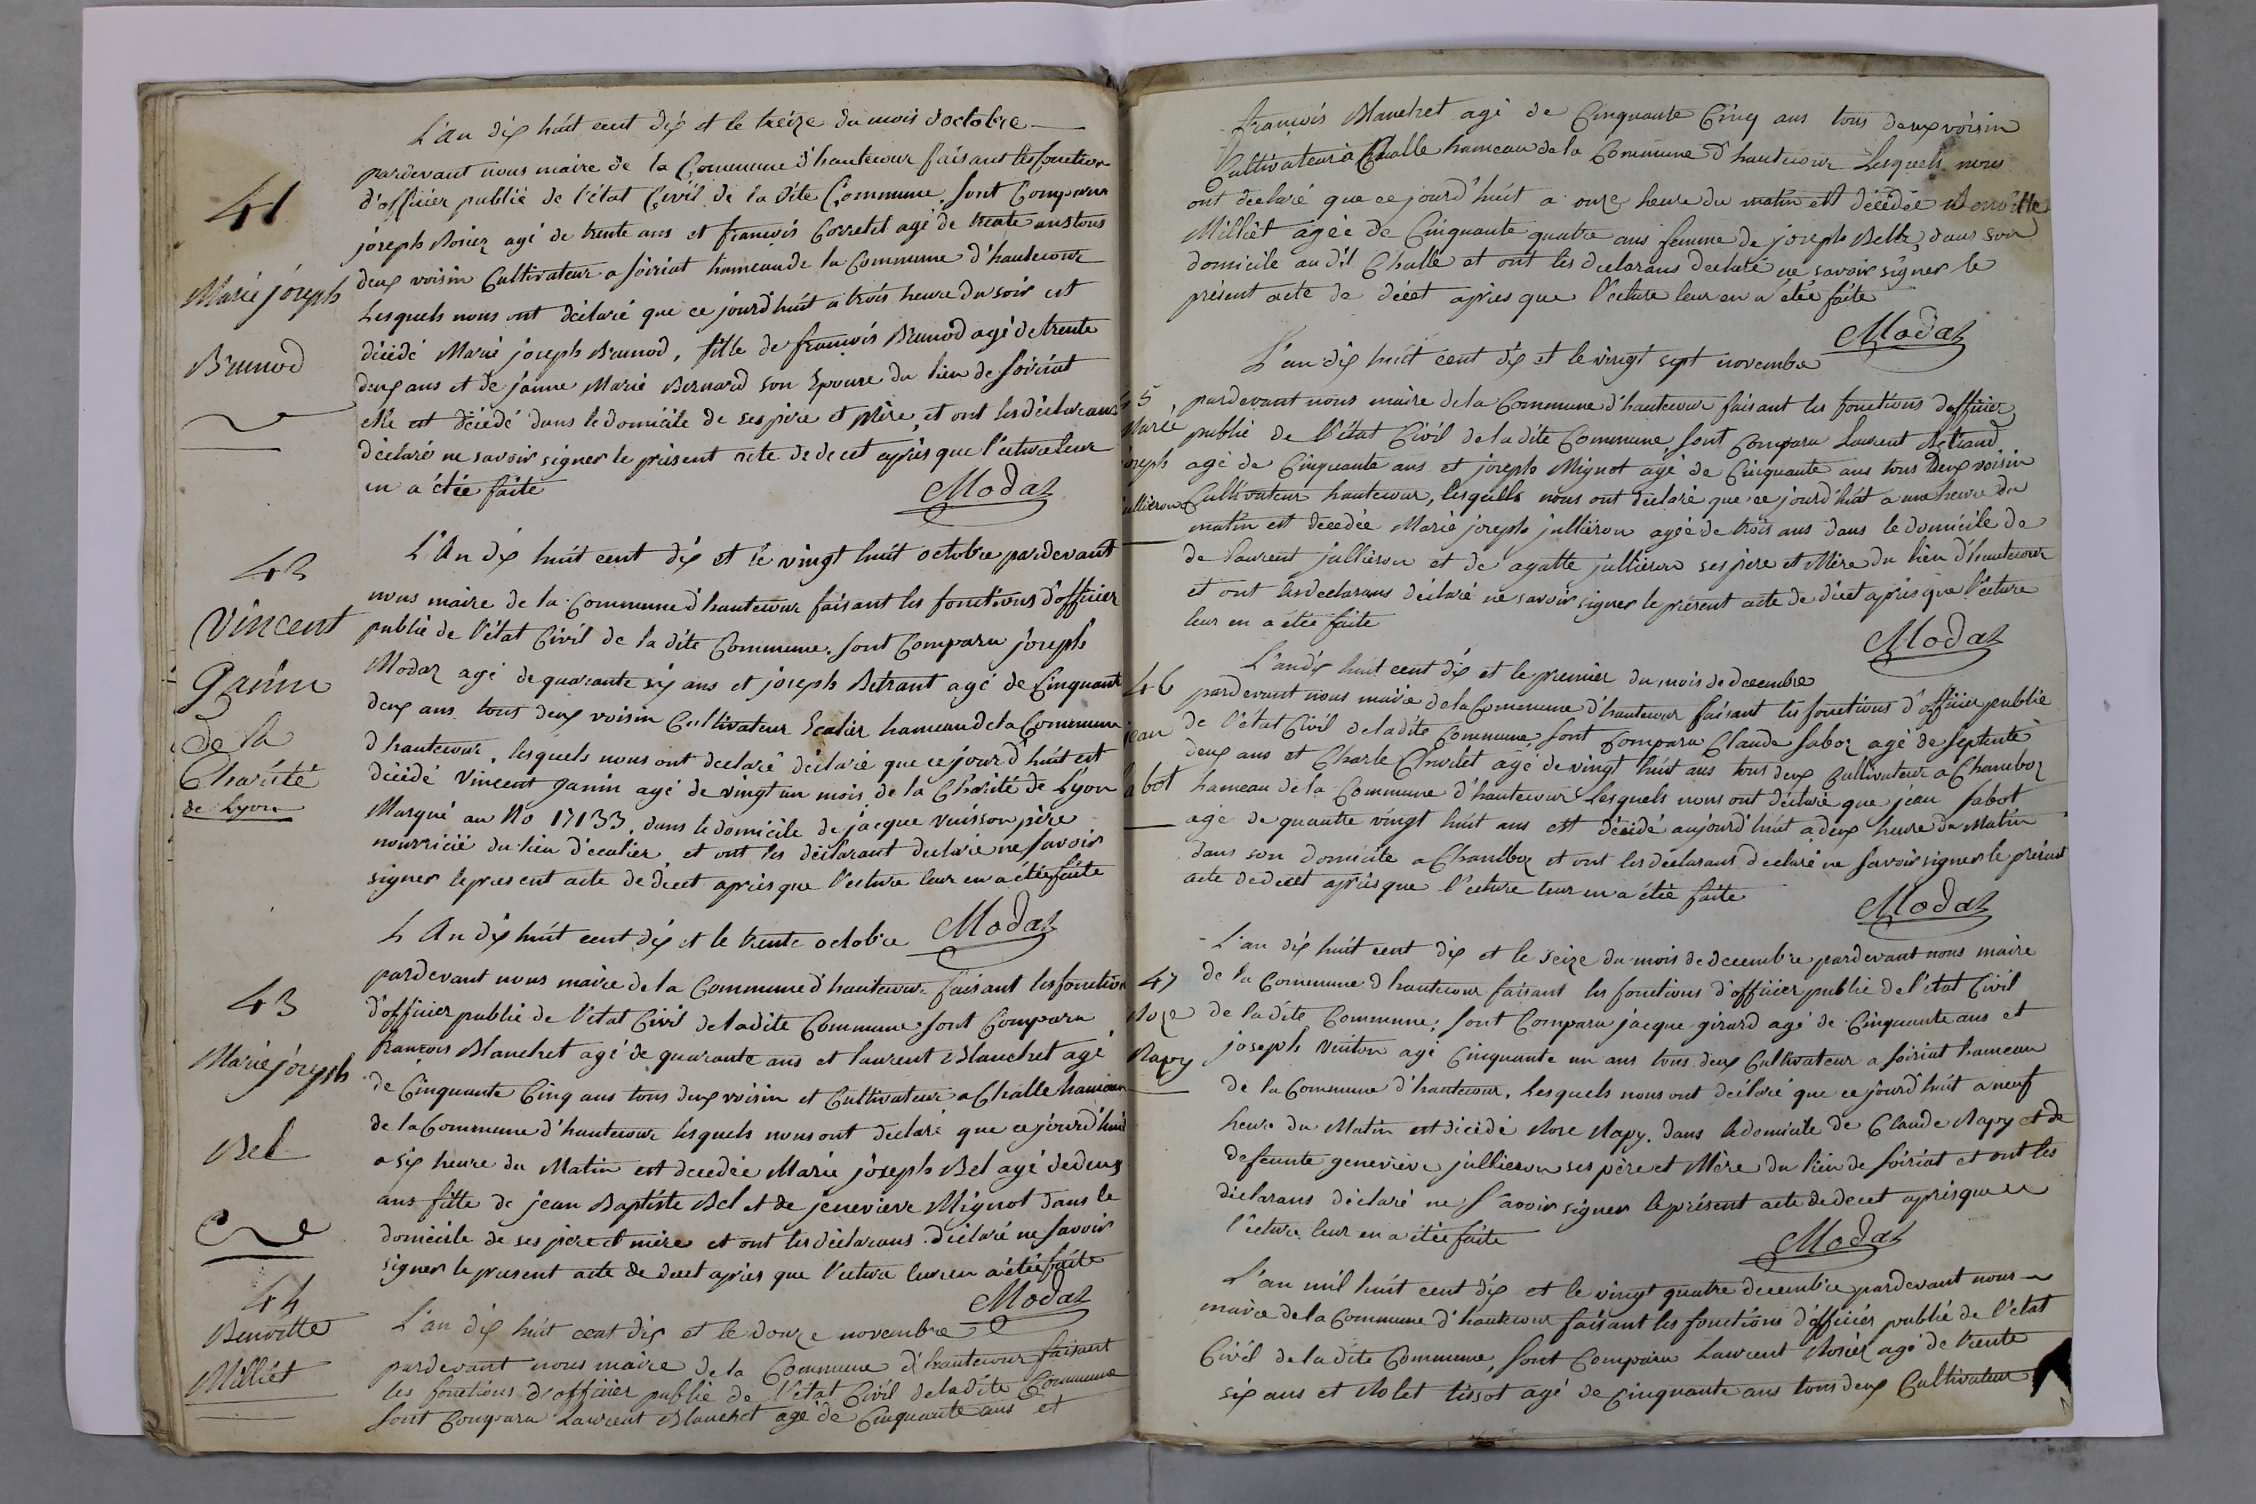 L'an dix huit cent dix et le treize du mois doctobre
41
pardevant nous maire de la Commune d'hautecour faisant les fonction
d'officier publié de l'état Civil de la dite Commune, sont Comparu
joseph Rosier agé de trente ans et françois Corretel agé de trente ans tous
deux voisin Cultivateur a soiriat hameau de la Commune d'hautecour
Marie joseph
Lesquels nous ont déclaré que ce jourd'huit a trois heure du soir est
décédé Marie joseph Brunod, fille de françois Brunod agé de trente
Brunod
deux ans et de janne Marie Bernard son Epouse du lieu de soiriat
elle est décédé dans le domicile de ses père et Mère, et ont les déclarans
déclaré ne savoir signer le présent acte de decet après que l'ecture leur
en a étée faite
Modas
42
L'An dix huit cent dix et le vingt huit octobre pardevant
nous maire de la Commune d'hautecour faisant les fonctions d'officier
Vincent
publié de l'état Civil de la dite Commune, sont Comparu joseph
ganin
Modas agé de quarante six ans et joseph Betrant agé de Cinquant
de la
deux ans tout deux voisin Cultivateur Ecalier hameau de la Commune
d'hautecour, lesquels nous ont declaré déclaré que ce jourd'huit est
Charité
décédé Vincent ganin agé de vingt un mois de la Charité de Lyon
de Lyon
Marqué au No 17133, dans le domicile de jacque vuisson père
nourricié du lieu d'ecalier, et ont les déclarant declaré ne savoir
signer le present acte de decet après que l'ecture leur en a étée faite
Modas
L'An dix huit cent dix et le trente octobre
43
pardevant nous maire de la Commune d'hautecour faisant les fonction
d'officier publié de l'état Civil de la dite Commune sont Comparu
françois Blanchet agé de quarante ans et laurent Blanchet agé
Marie joseph
de Cinquante Cinq ans tous deux voisin et Cultivateur a Challe hameau
de la Commune d'hautecour lesquels nous ont declaré que ce jourd'huit
Bel
a six heure du Matin est decedée Marie joseph Bel agé de deux
ans fille de jean Baptiste Bel et de jenevieve Mignot dans le
domicile de ses père et mère et ont les déclarans déclaré ne savoir
signer le present acte de decet après que l'ecture leur en a étée faite
Modas
44
Benoitte
L'an dix huit cent dix et le douze novembre
Milliet
pardevant nous maire de la Commune d'hautecour faisant
les fonctions d'officier publié de l'état Civil de la dite Commune
sont Comparu Laurent Blanchet agé de Cinquante ans et
françois Blanchet agé de Cinquante Cinq ans tous deux voisin
Cultivateur a Challe hameau de la Commune d'hautecour Lesquels nous
ont declaré que ce jourd'huit a onze heure du matin est décédée Benoitte
Milliet agée de Cinquante quatre ans femme de joseph Belle, dans son
domicile au dit Challe et ont les declarans declaré ne savoir signer le
présent acte de décet après que l'ecture leur en a étée faite
Modas
L'an dix huit cent dix et le vingt sept novembre
45
pardevant nous maire de la Commune d'hautecour faisant les fonctions d'officier
Marie
publié de l'état Civil de la dite Commune, sont Comparu Laurent Betrand
joseph
agé de Cinquante ans et joseph Mignot agé de Cinquante ans tous Deux voisin
jullieron
Cultivateur hautecour, lesquelle nous ont declaré que ce jourd'huit a une heure du
matin est decedée Marie joseph jullieron agée de trois ans dans le domicile de
de laurent jullieron et de agatte jullieron ses père et Mère du lieu d'hautecour
et ont les declarans déclaré ne savoir signer le présent acte de décet après que l'ecture
leur en a étée faite
Modas
L'an dix huit cent dix et le premier du mois de decembre
46
pardevant nous maire de la Commune d'hautecour faisant les fonctions d'officier publié
jean
de l'état Civil de la dite Commune, sont comparu Claude saboz agé de septente
deux ans et Charle Chardet agé de vingt huit ans tous deux Cultivateur a Chamboz
sabot
hameau de la Commune d'hautecour Lesquels nous ont déclaré que jean sabot
agé de quautre vingt huit ans est décédé aujourd'huit a deux heure du Matin
dans son domicile a Chamboz et ont les declarans declaré ne savoir signer le présent
acte de decet après que l'ecture leur en a étée faite
Modas
L'an dix huit cent dix et le seize du mois de decembre pardevant nous maire
47
de la Commune d'hautecour faisant les fonctions d'officier publié de l'état Civil
Roze
de la dite Commune, sont Comparu jacque girard agé de Cinquante ans et
Rapy
joseph Vuiton agé Cinquante un ans tous deux Cultivateur a soiriat hameau
de la Commune d'hautecour, Lesquels nous ont déclaré que ce jourd'huit a neuf
heure du Matin est décédé Rose Rapy, dans le domicile de Claude Rapy et de
defeunte genevieve jullieron ses père et Mère du lieu de soiriat et ont les
déclarans déclaré ne savoir signer le présent acte de decet après que
l'ecture leur en a étée faite
Modas
L'an mil huit cent dix et le vingt quatre decembre pardevant nous
maire de la Commune d'hautecour faisant les fonctions d'officier publié de l'état
Civil de la dite Commune, sont Comparu Laurent Rosier agé de trente
six ans et Rolet tissot agé de Cinquante ans tous deux Cultivateur